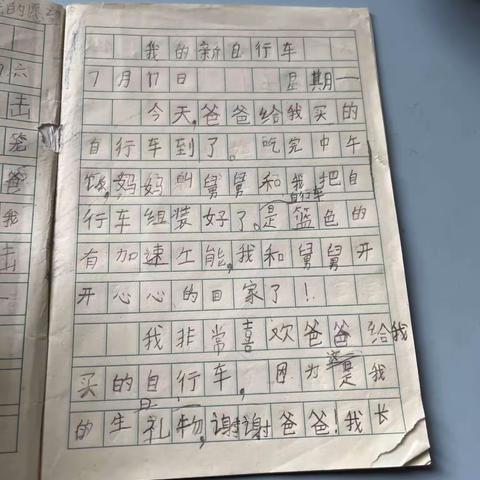 我的新自行车
7月17日 星期一
今天,爸爸给我买的
自行车到了。吃完中午
饭,妈妈叫舅舅和我把自
行车组装好了。自行车是篮色的
有加速工能,我和舅舅开
开心心的回家了!
我非常喜欢爸爸给我
买的自行车,因为这是我
的生日礼物,谢谢爸爸!我长
的愿
六
击
笼
爸
我
击
一